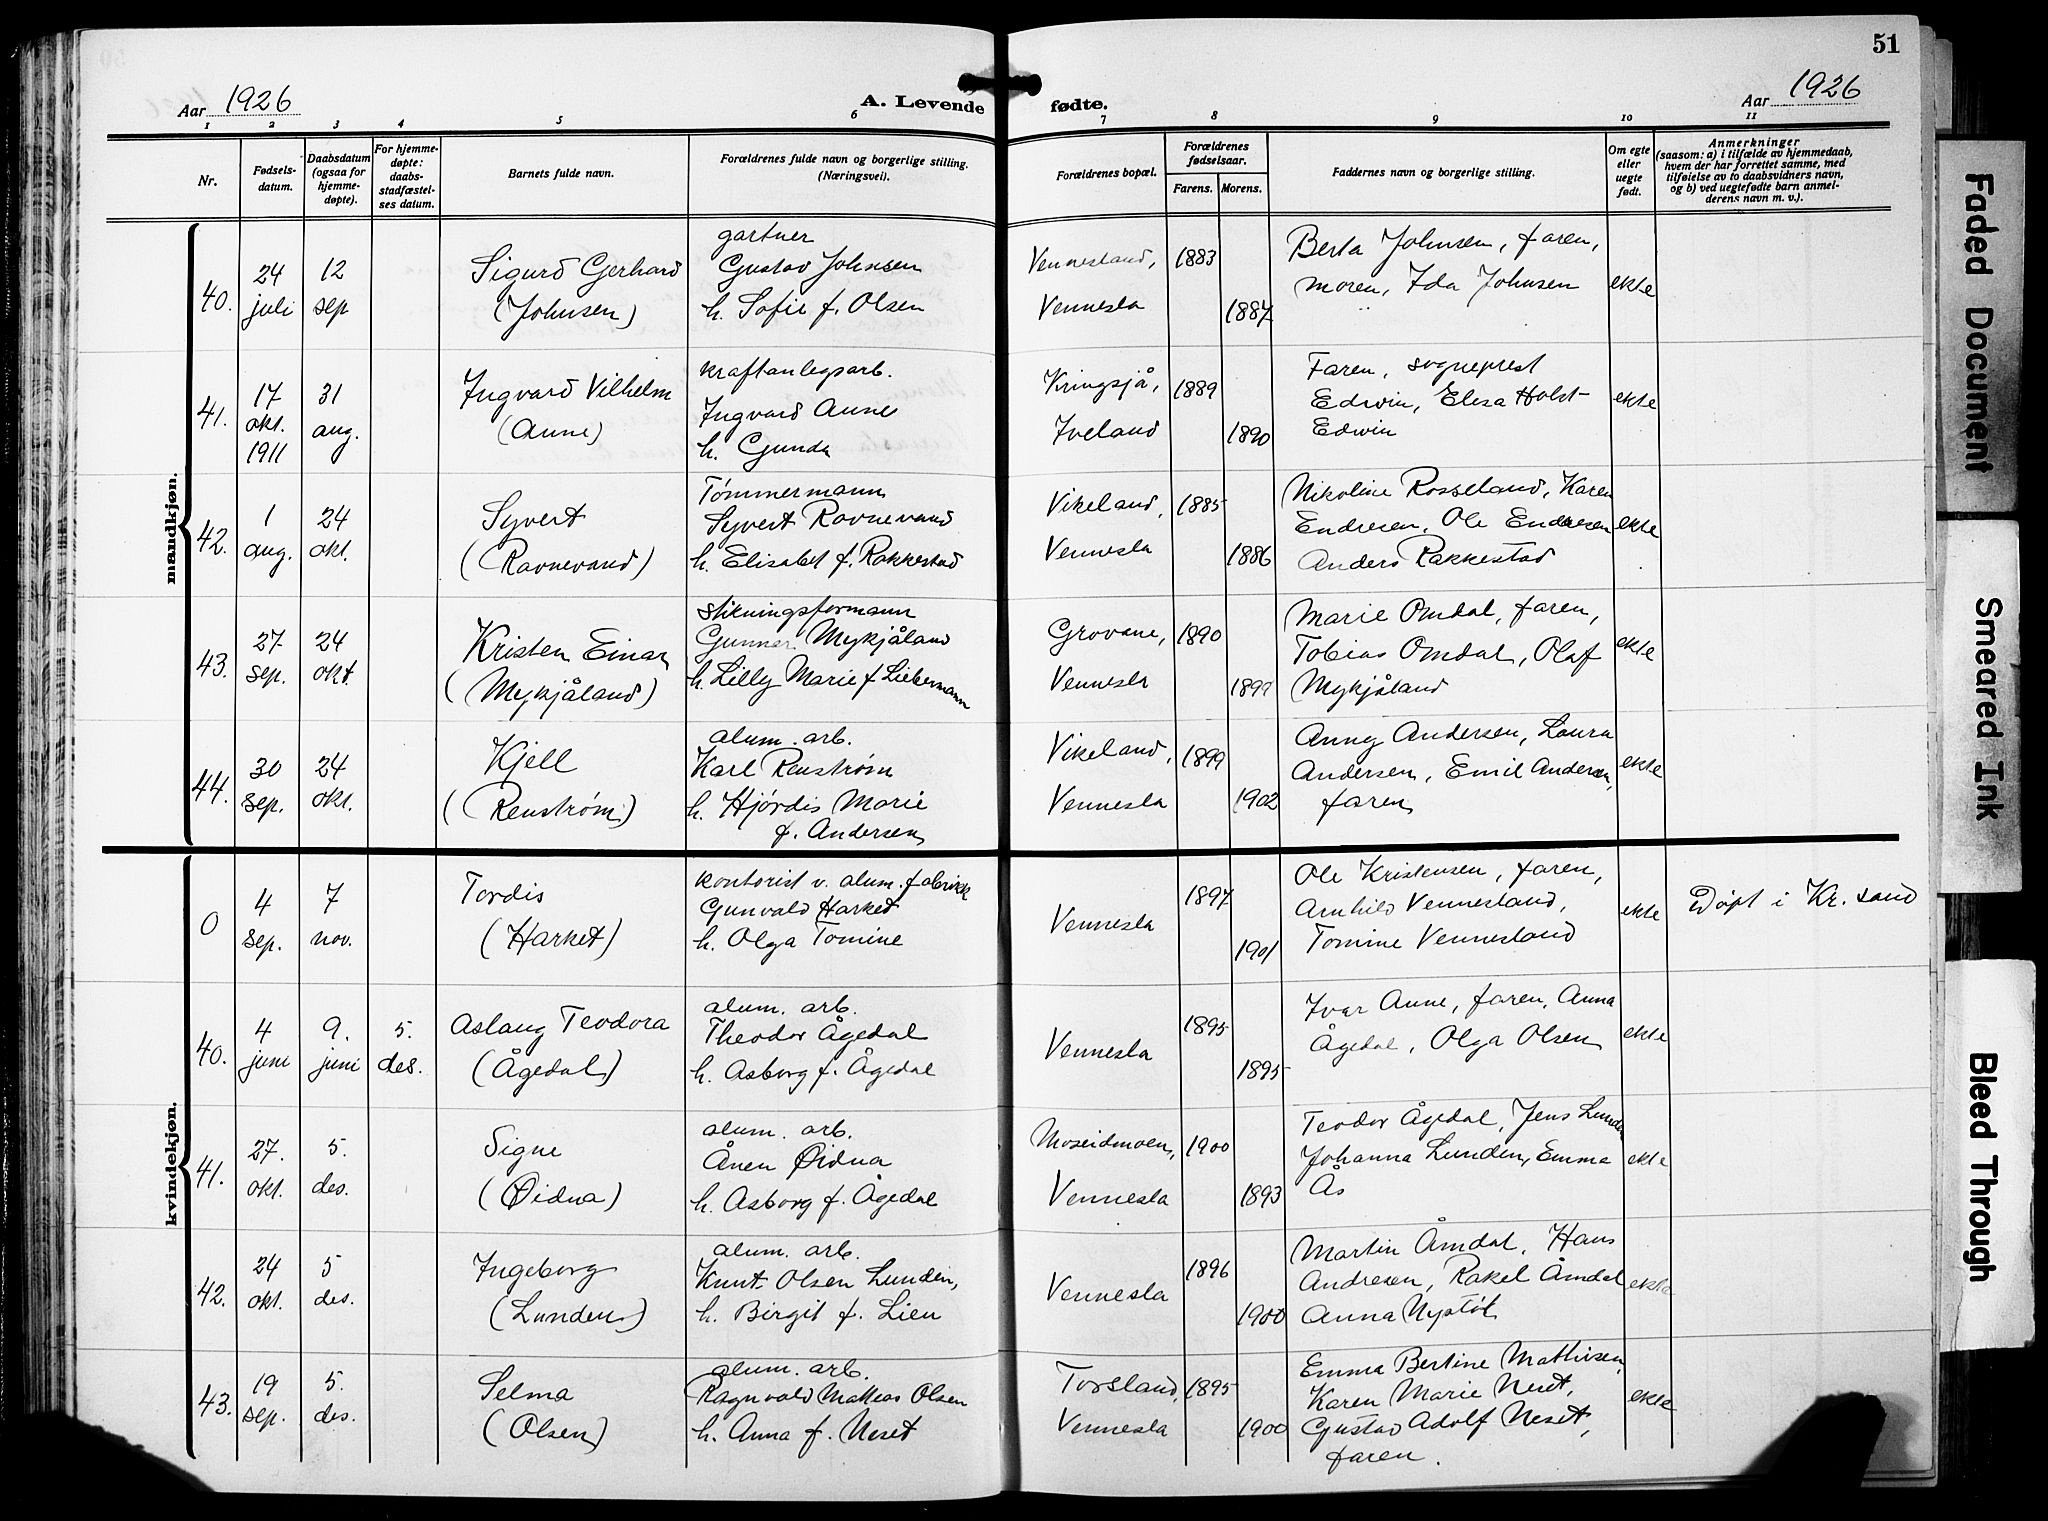 51
Aar 1926
A. Levende fødte.
Aar 1926
1 2 3 4 5 6 7 8 9 10 11
Nr.
Fødsels-
datum.
Daabsdatum
(ogsaa for
hjemme-
døpte).
For hjemme-
døpte:
daabs-
stadfæstel-
ses datum.
Barnets fulde navn.
Forældrenes fulde navn og borgerlige stilling.
(Næringsvei).
Forældrenes bopæl.
Forældrenes
fødselsaar.
Farens. Morens.
Faddernes navn og borgerlige stilling.
Om egte
eller
uegte
født.
Anmerkninger
(saasom: a) i tilfælde av hjemmedaab,
hvem der har forrettet samme, med
tilføielse av to daabsvidners navn,
og b) ved uegtefødte barn anmel-
derens navn m. v.).
mandkjøn.
40.
24
juli
12
sep
Sigurd Gerhard
(Johnsen)
gartner
Gustav Johnsen
h. Sofie f. Olsen
Vennesland,
Vennesla
1883
1887
Berta Johnsen, faren,
moren, Ida Johnsen
ekte
41.
17
okt.
1911
31
aug.
Ingvard Vilhelm
(Aune)
kraftanlegsarb.
Ingvard Aunes
h. Gunda
Kringsjå,
Iveland
1889
1890
Faren, sogneprest
Edwin, Elesa Holst-
Edwin
ekte
42.
1
aug.
24
okt.
Syvert
(Ravnevand)
Tømmermann
Syvert Ravnevand
h. Elisabet f. Rakkestad
Vikeland,
Vennesla
1885
1886
Nikoline Rosseland, Karen
Endresen, Ole Endresen
Anders Rakkestad
ekte
43.
27
sep.
24
okt.
Kristen Einar
(Mykjåland)
stikningsformann
Gunnar Mykjåland
h. Lilly Marie f Liebermann
Grovane,
Vennesla
1890
1899
Marie Omdal, faren,
Tobias Omdal, Olaf
Mykjåland
ekte
44.
30
sep.
24
okt.
Kjell
(Renstrøm)
alum. arb.
Karl Renstrøm
h. Hjørdis Marie
f. Andersen
Vikeland,
Vennesla
1899
1902
Anny Andersen, Laura
Andersen, Emil Andersen,
faren
ekte
kvindekjøn.
0
4
sep.
7
nov.
Tordis
(Harket)
kontorist v. alum. fabrikk
Gunvald Harket
h. Olga Tomine
Vennesla
1897
1901
Ole Kristensen, faren,
Arnhild Vennesland,
Tomine Vennesland
ekte
Døpt i Kr. sand
40.
4
juni
9.
juni
5.
des.
Aslaug Teodora
(Ågedal)
alum. arb.
Theodor Ågedal
h. Asborg f. Ågedal
Vennesla
1895
1895
Ivar Aune, faren, Anna
Ågedal, Olga Olsen
ekte
41.
27.
okt.
5.
des.
Signe
(Øidna)
alum. arb.
Ånen Øidna
h. Asborg f. Ågedal
Moseidmoen,
Vennesla
1900
1893
Teodor Ågedal, Jens Lunden
Johanna Lunden, Emma
Ås
ekte
42.
24
okt.
5
des.
Ingeborg
(Lunden)
alum. arb.
Knut Olsen Lunden,
h. Birgit f. Lien
Vennesla
1896
1900
Martin Åmdal, Hans
Andresen, Rakel Åmdal
Anna Nystøl
ekte
43.
19
sep.
5.
des.
Selma
(Olsen)
alum. arb.
Ragnvald Mathias Olsen
h. Anna f. Neset
Torsland,
Vennesla
1895
1900
Emma Bertine Mathisen,
Karen Marie Neset,
Gustav Adolf Neset,
faren.
ekte
Faded Document
Smeared Ink
Bleed Through